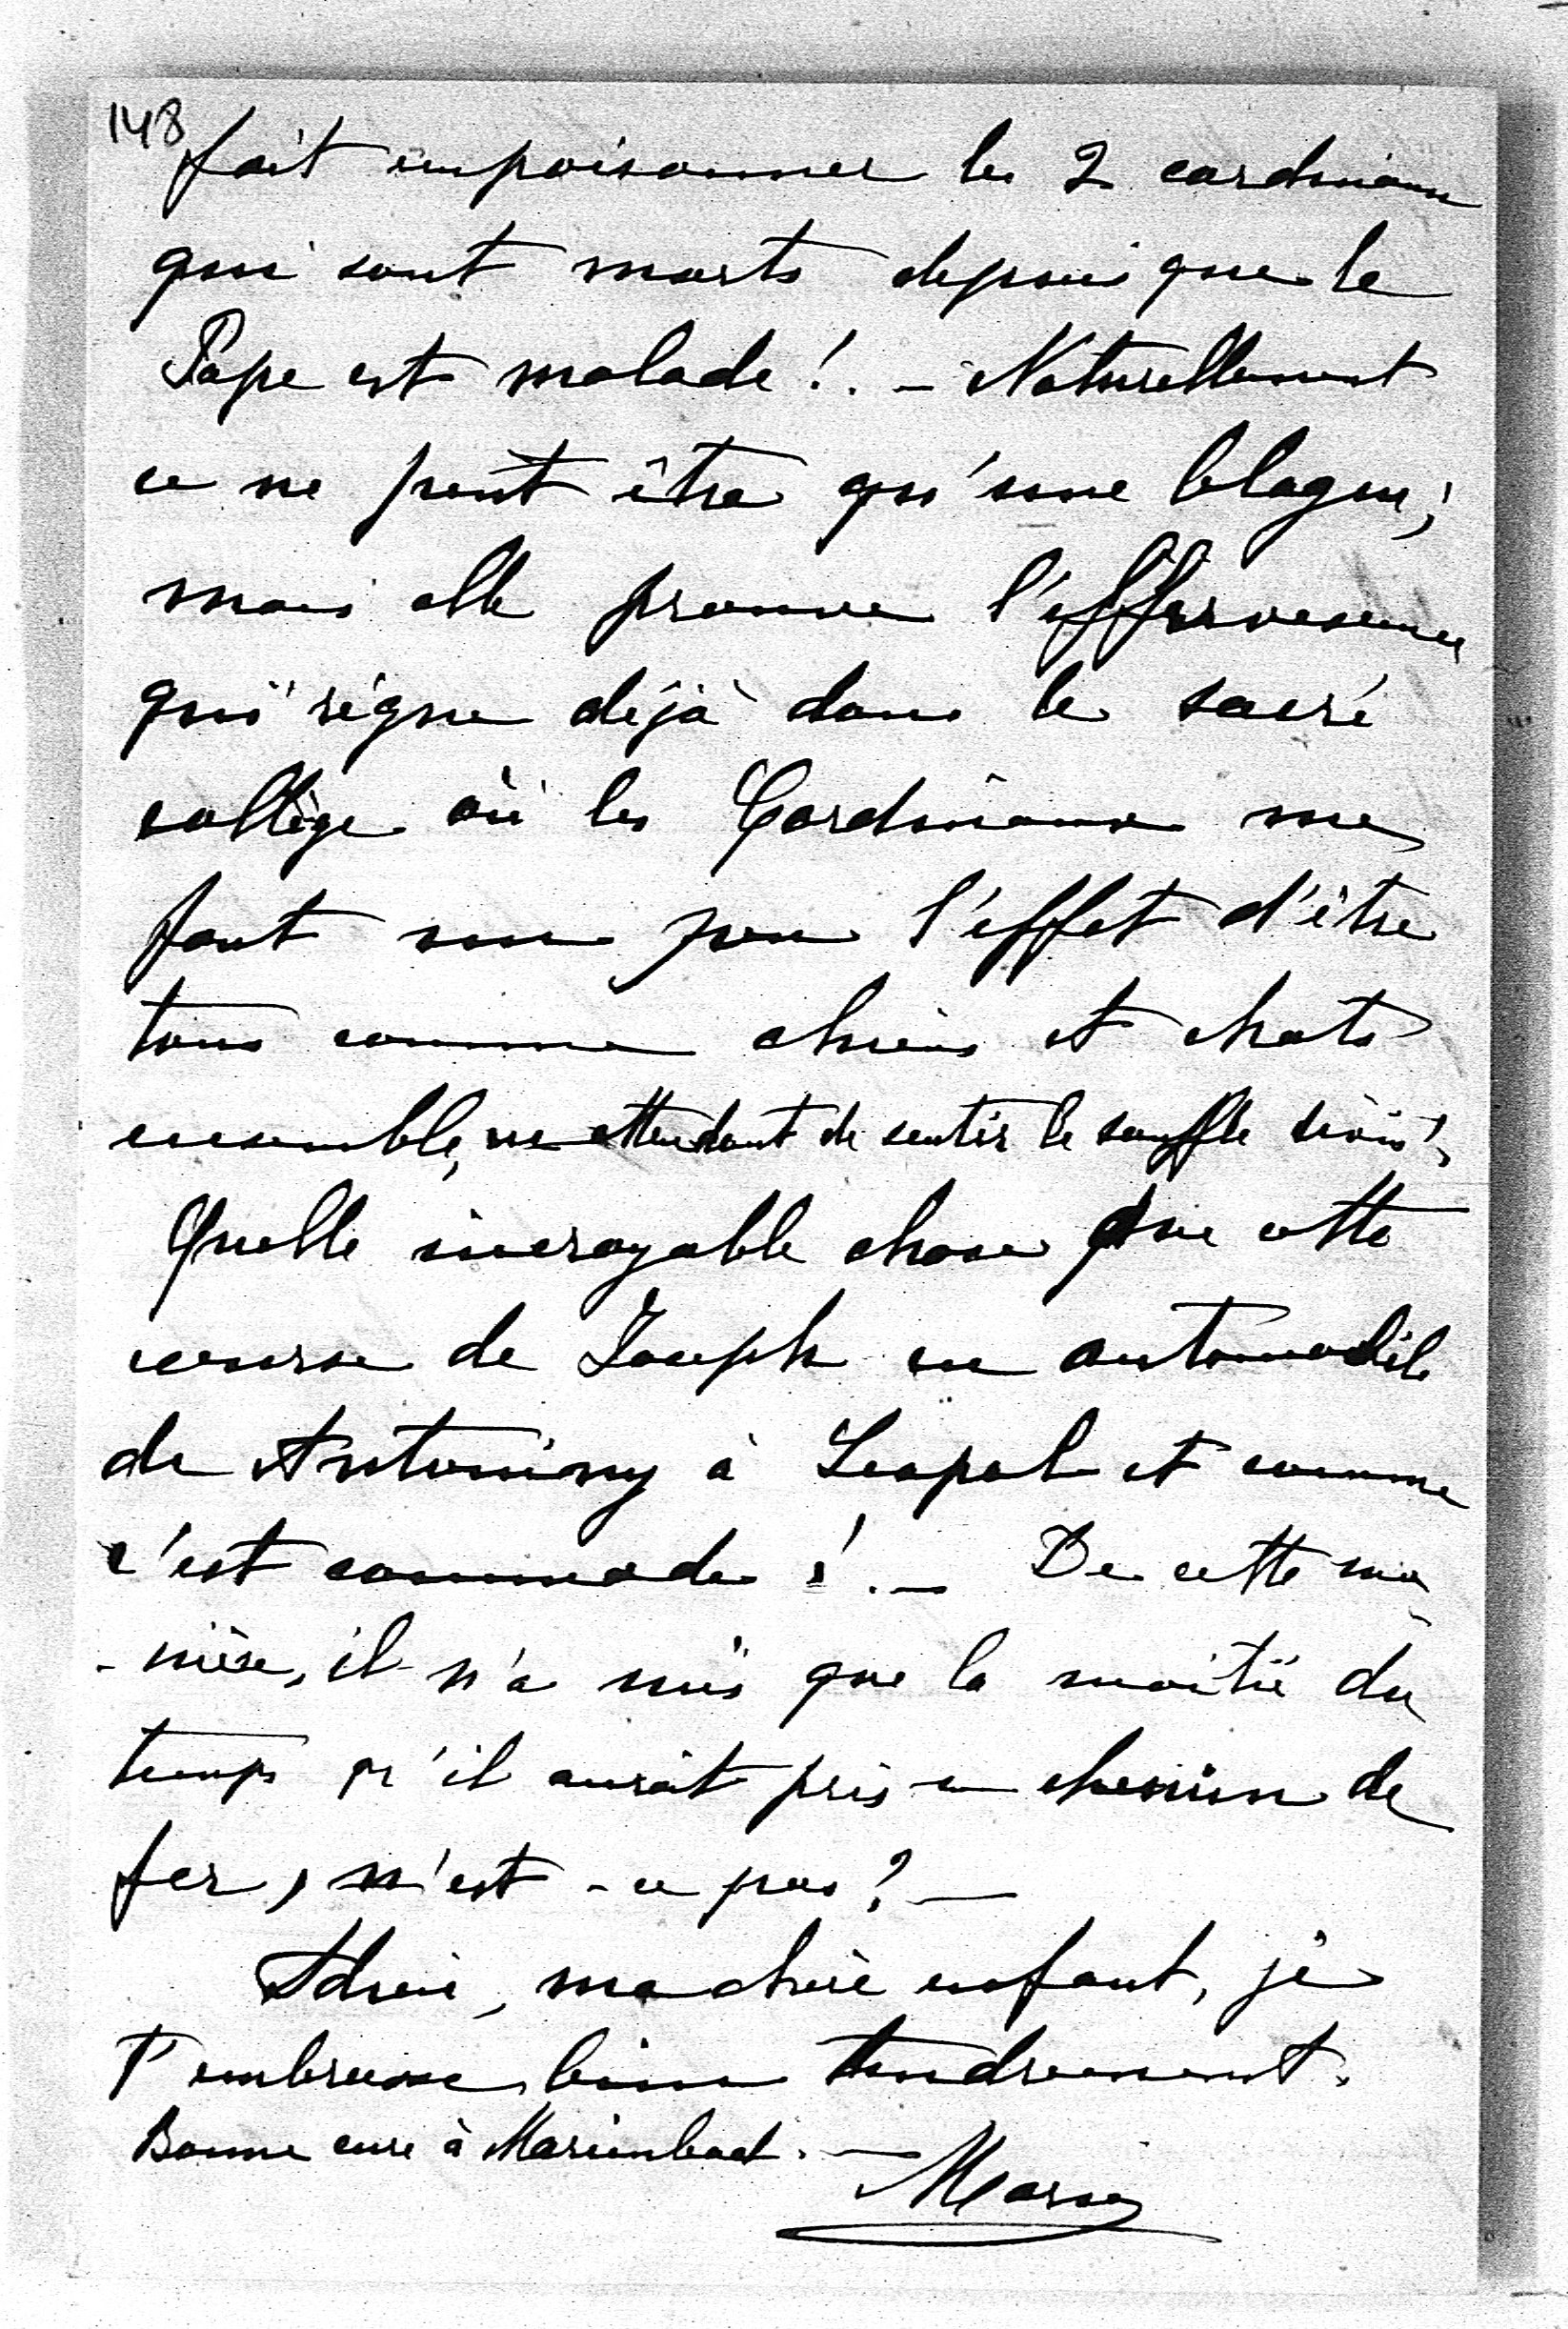 148
fait empoisonner les 2 cardinaux
qui sont morts depuis que le
Pape est malade !. – Naturellement
ce ne peut être qu'une blague ;
mais elle prouve l'effervescence
qui règne déjà dans le sacré
collège où les Cardinaux me
font un peu l'effet d'être
tous comme chiens et chats
ensemble, en attendant de sentir le souffle divin !,
Quelle incroyable chose que cette
course de Joseph en automobile
de Antoniny à Léopol et comme
c'est commode ! . – De cette ma
- nière, il n'a mis que la moitié du
temps qu'il aurait pris en chemin de
fer, n'est - ce pas ? –
Adieu, ma chère enfant, je
t'embrasse bien tendrement.
Bonne cure à Marienbad. –